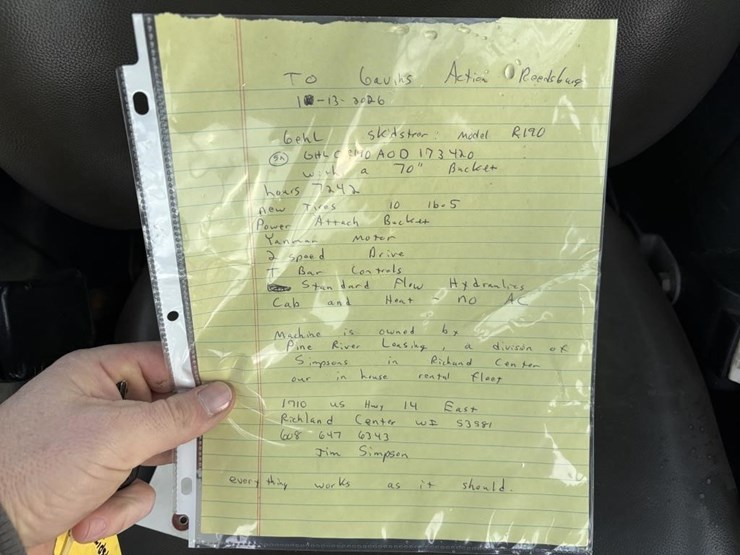 TO Gavins Action Reedsburg
-13-2026
Gehl Skidsteer Model R190
SN
with a 70" Bucket
hours 7242
new Tires 10 16.5
Power Attach Bucket
Yanmar Motor
2 speed Drive
T Bar Controls
Standard Flow Hydraulics
Cab and Heat - no AC
Machine is owned by
Pine River Leasing, a divison of
Simpsons in Richand Center
our in house rental fleet
1710 US Hwy 14 East
Richland Center WI 53581
608 647 6343
Jim Simpson
every thing works as it should.